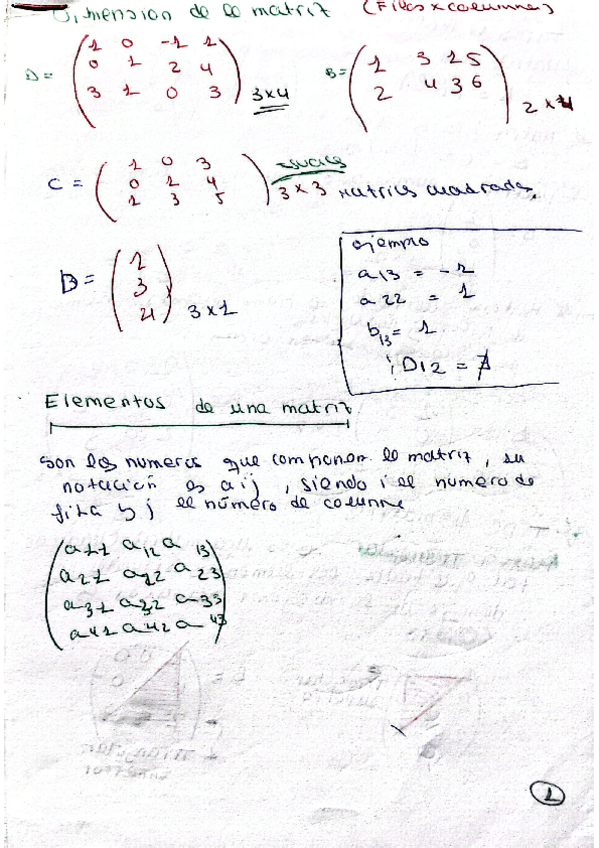 Dimension de la matriz (Filas x columnas)
A = ( 1 0 -1 1
0 1 2 4
3 1 0 3 ) 3x4
B = ( 1 3 1 5
2 4 3 6 ) 2 x 4
C = ( 1 0 3
0 1 4
1 3 5 ) 3 x 3 matrices cuadradas.
D = ( 1
3
4 ) 3 x 1
ejemplo
a13 = -1
a22 = 1
b13 = 1
D12 = ∄
Elementos de una matriz
son los numeros que componen la matriz, su
notación es aij, siendo i el numero de
fila y j el número de columna
( a11 a12 a13
a21 a22 a23
a31 a32 a33
a41 a42 a43 )
1